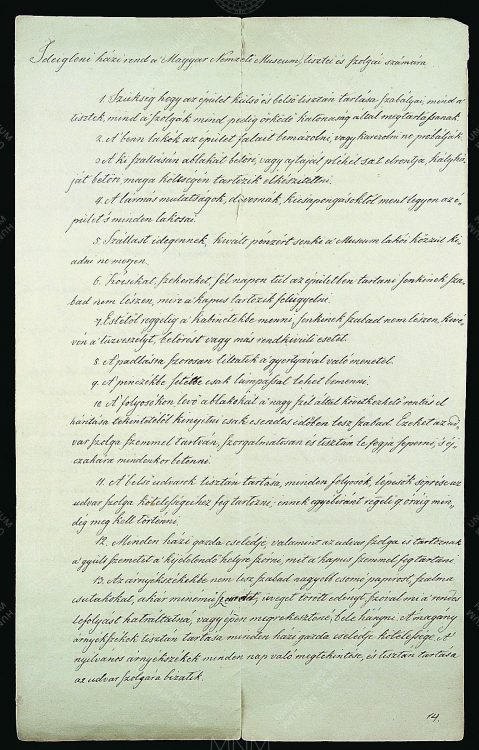 Ideigleni házi rend a Magyar Nemzeti Museum tisztei és szolgái számára
1. Szükség hogy az épület külső és belső tisztán tartása szabályai, mind a
tisztek, mind a szolgák mind pedig örködő katonaság által megtartassanak.
2. A benn lakók az épület falait bemázolni, vagy karczolni ne próbálják.
3 A ki szállásán ablakát betöri, vagy ajtaját pléket sat elrontja, kályhá-
ját betöri, maga költségén tartozik elkészíttetni.
4. A lármás mulatságok, dsornák, kicsapongásoktól ment legyen az é-
pület s minden lakosai.
5. Szállást idegennek, kivált pénzért senki a Museum lakói közzül ki-
adni ne merjen.
6. Kocsikat, szekereket, fél napon túl az épületben tartani senkinek sza-
bad nem leszen, mire a kapus tartozik felügyelni.
7. Estétöl reggelig a kabinetekbe menni, senkinek szabad nem leszen, kivé-
ven a tüzveszélyt, betörést vagy más rendkivüli esetet.
8. A padlásra szorosan tiltatik a gyertyával való menetel.
9. A pinczékbe setétbe csak lámpással lehet bemenni.
10. A folyosókon levő ablakokat a nagy szél által következhető rontás el
hárítása tekintetéből kinyitni csak csendes időben lesz szabad. Ezeket az ud-
var szolga szemmel tartván, szorgalmatosan és tisztán le fogja seperni, s éj-
czakára mindenkor betenni.
11. A belső udvarok tisztán tartása, minden folyosók, lépcsők söprése az
udvar szolga kötelességeihez fog tartozni; ennek egyébiránt régeli 9. óráig min-
dig meg kell történni,
12. Minden házi gazda cselédje, valamint az udvar szolga is tartoznak
a gyült szemetet a kijelelendö helyre hordni, mit a kapus szemmel fog tartani.
13. Az árnyékszékekbe nem lesz szabad nagyobb csomó papirost, szalma
csutakokat, akár minémü szemetet, üveget törött edényt szóval mi a rendes
lefolyást hátráltatná, vagy épen megrekesztené, bele hányni. A magány
árnyékszékek tisztán tartása minden házi gazda cselédje kötelessége. A
nyilvános árnyékszékek minden nap való megtekintése, és tisztán tartása
az udvar szolgára bizatik.
14.
MNM